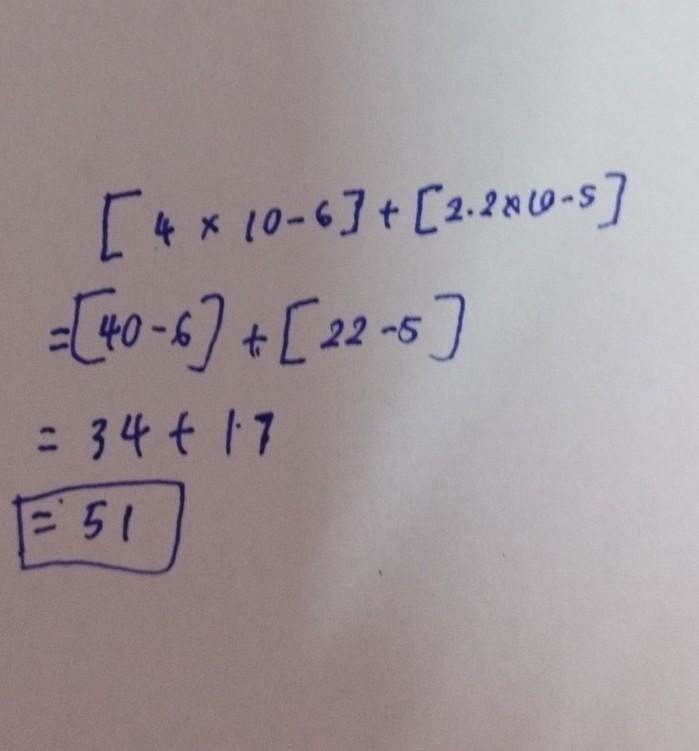 [4 × 10-6] + [2.2×10-5]
= [40-6] + [22-5]
= 34 + 1.7
= 51